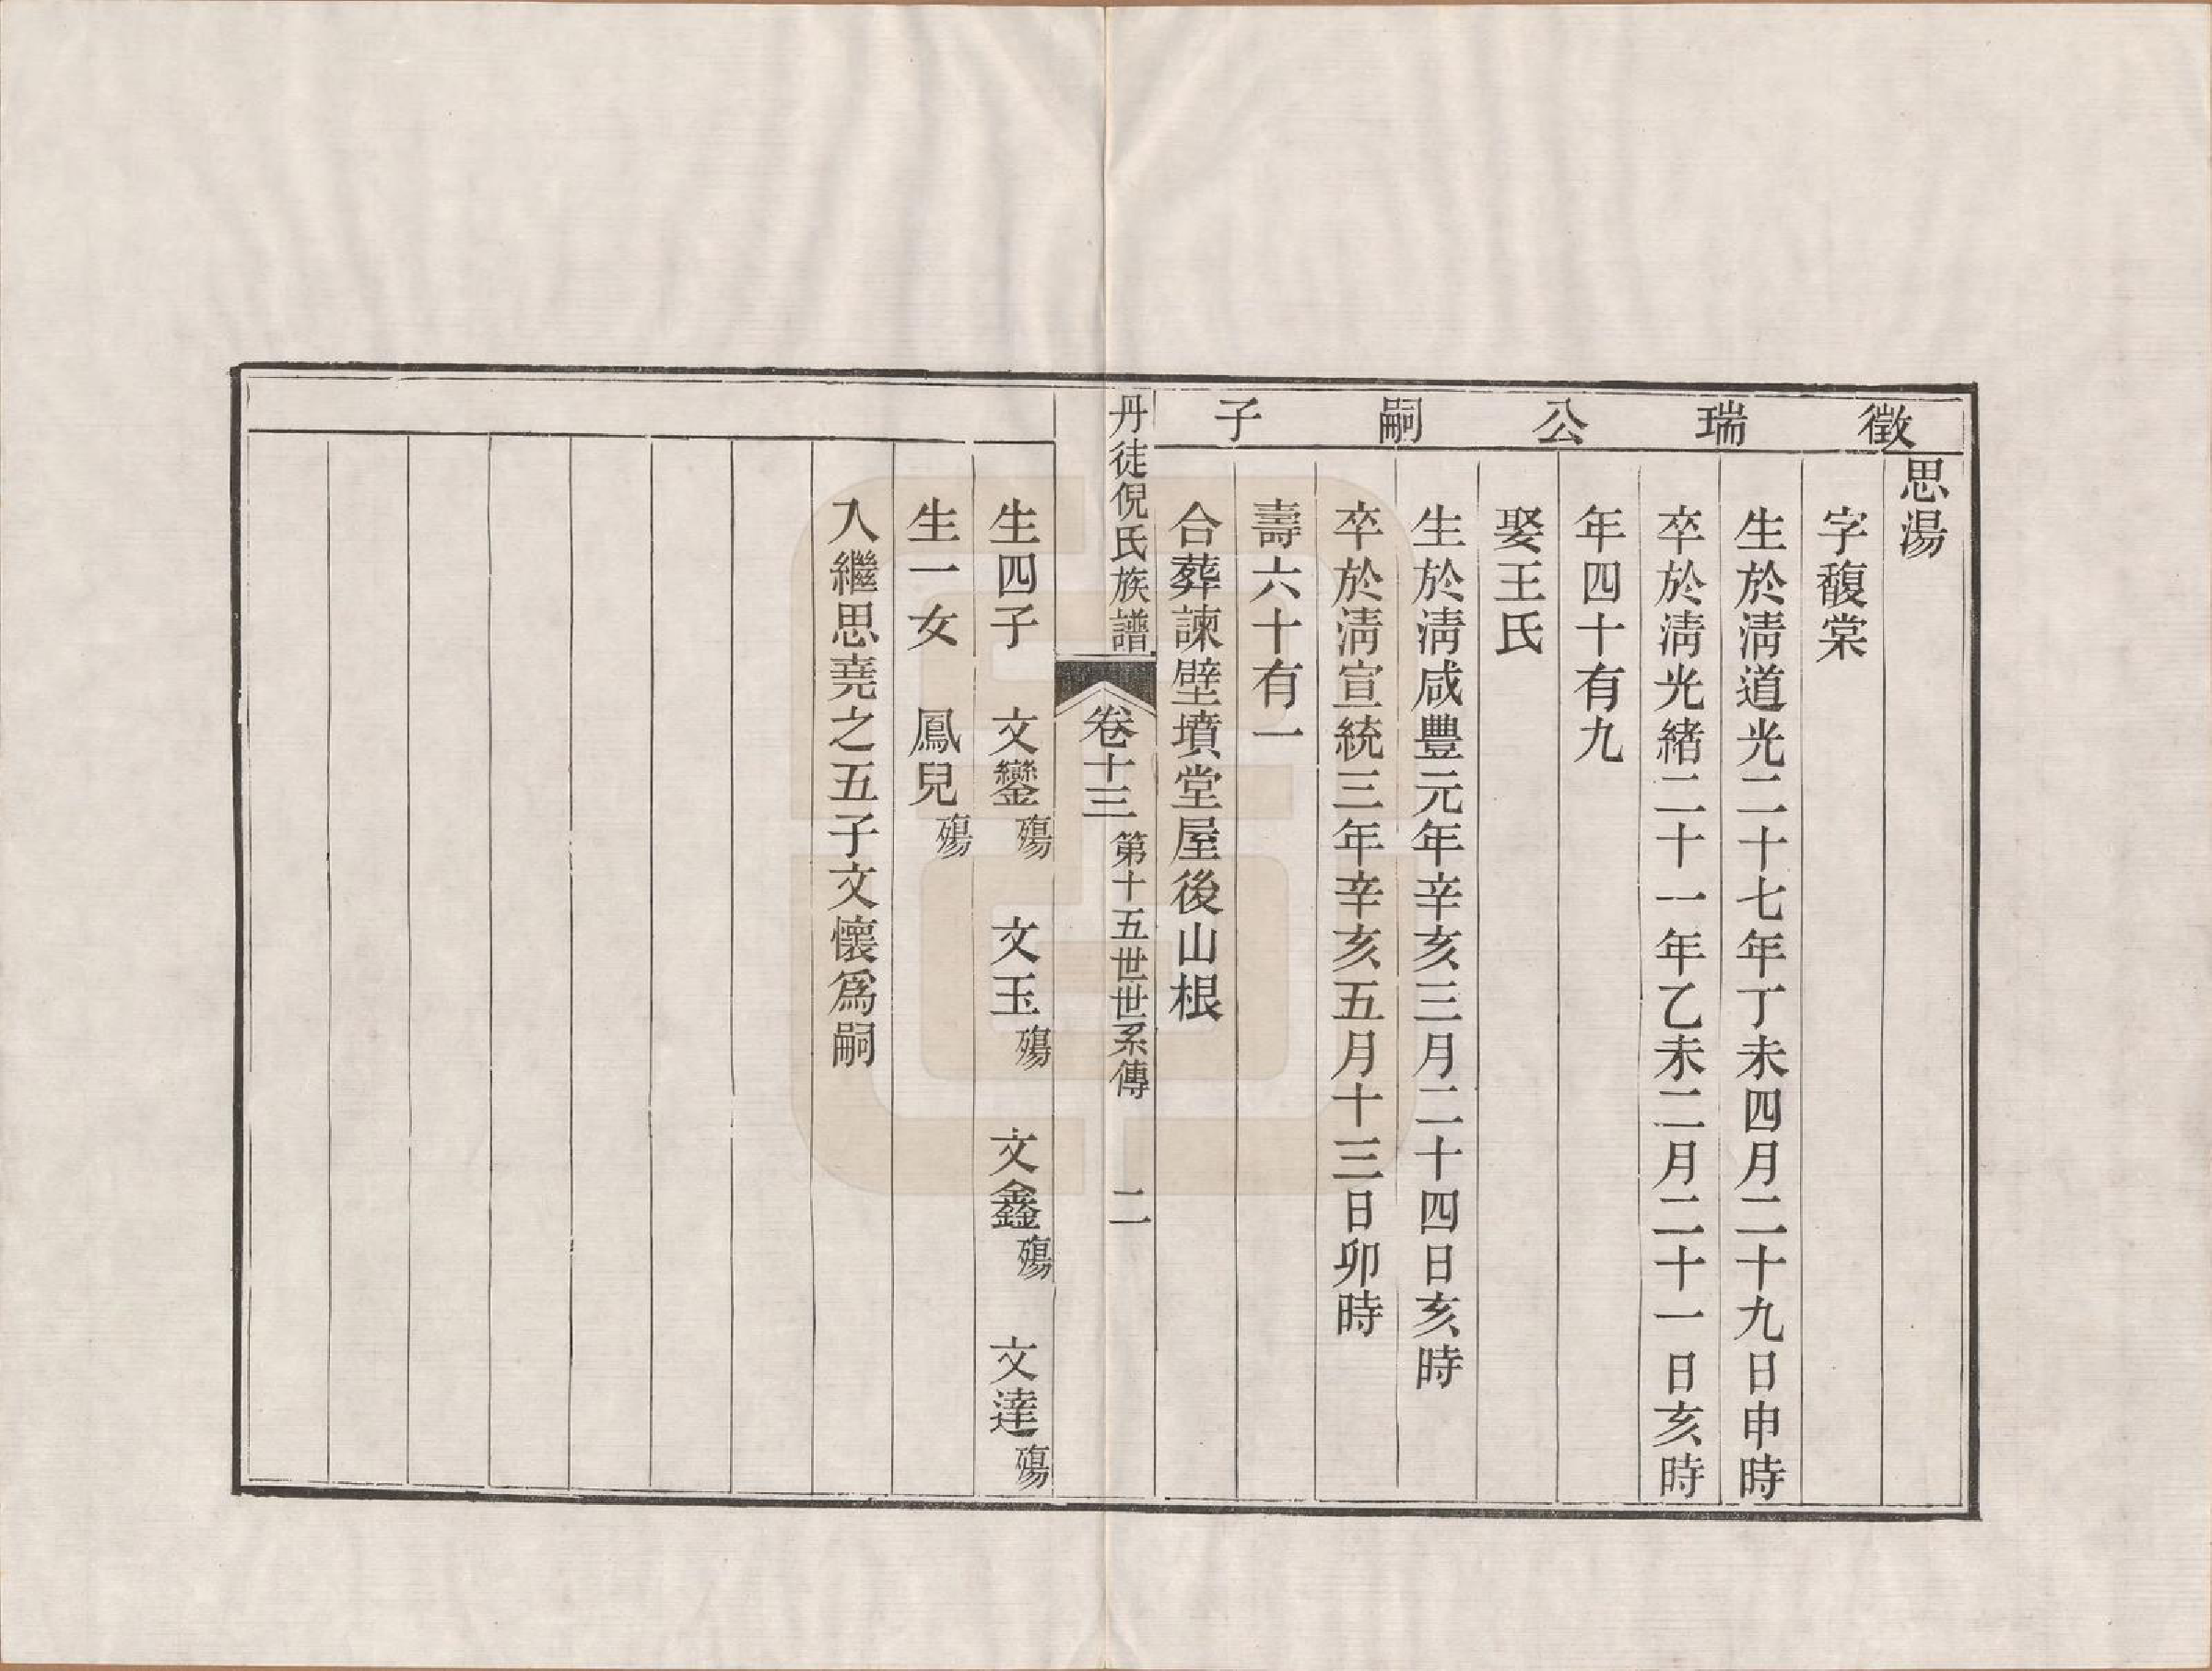 徵瑞公嗣子
思湯
字馥棠
生於淸道光二十七年丁未四月二十九日申時
卒於淸光緒二十一年乙未二月二十一日亥時
年四十有九
娶王氏
生於淸咸豐元年辛亥三月二十四日亥時
卒於淸宣統三年辛亥五月十三日卯時
壽六十有一
合葬諫壁墳堂屋後山根
丹徒倪氏族譜 卷十三 第十五世世系傳 二
生四子 文鑾殤 文玉殤 文鑫殤 文達殤
生一女 鳳兒殤
入繼思堯之五子文懷爲嗣